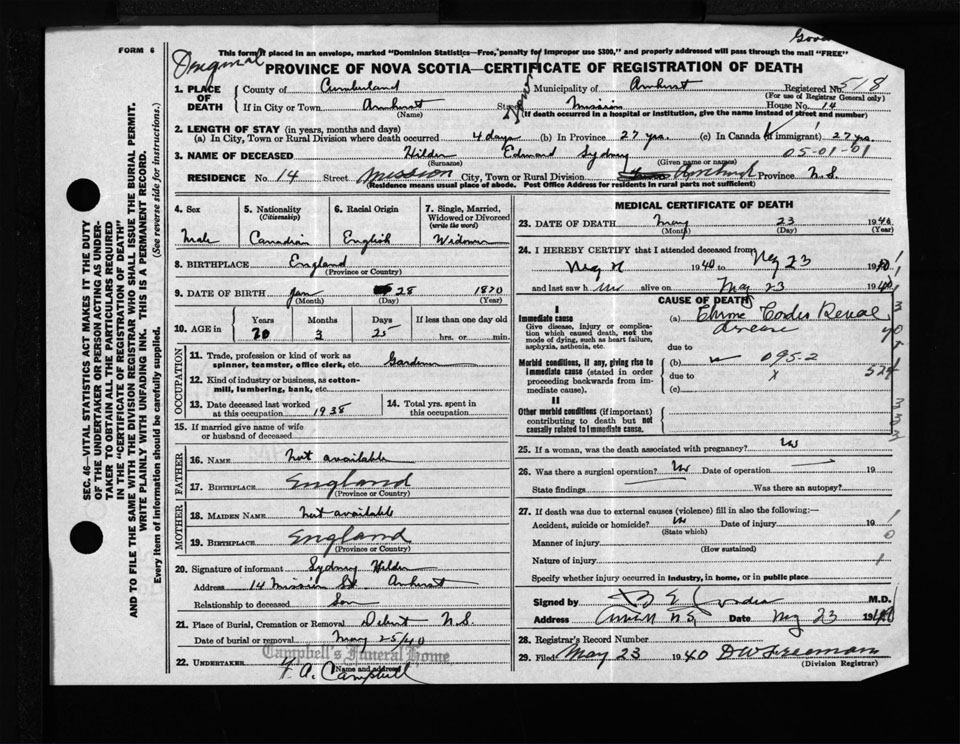 Gover
FORM 6
This form if placed in an envelope, marked "Dominion Statistics—Free, penalty for improper use $300," and properly addressed will pass through the mail "FREE"
Original
PROVINCE OF NOVA SCOTIA—CERTIFICATE OF REGISTRATION OF DEATH
1. PLACE OF DEATH
County of Cumberland Municipality of Amherst Registered No. 518
(For use of Registrar General only)
If in City or Town Amherst Street Mission House No. 14
(Name) (If death occurred in a hospital or institution, give the name instead of street and number)
2. LENGTH OF STAY (in years, months and days)
(a) In City, Town or Rural Division where death occurred 4 days (b) In Province 27 yrs. (c) In Canada (if immigrant) 27 yrs.
3. NAME OF DECEASED Hilden Edmond Sydney 05-01-01
(Surname) (Given name or names)
RESIDENCE No. 14 Street Mission City, Town or Rural Division Amherst Province N.S.
(Residence means usual place of abode. Post Office Address for residents in rural parts not sufficient)
4. Sex
Male
5. Nationality
(Citizenship)
Canadian
6. Racial Origin
English
7. Single, Married, Widowed or Divorced
(write the word)
Widower
8. BIRTHPLACE England
(Province or Country)
9. DATE OF BIRTH Jan 28 1870
(Month) (Day) (Year)
10. AGE in
Years Months Days If less than one day old
70 3 25 hrs. or min.
OCCUPATION
11. Trade, profession or kind of work as spinner, teamster, office clerk, etc. Gardener
12. Kind of industry or business, as cotton-mill, lumbering, bank, etc.
13. Date deceased last worked at this occupation 1938
14. Total yrs. spent in this occupation
15. If married give name of wife or husband of deceased
FATHER
16. NAME Not available
17. BIRTHPLACE England
(Province or Country)
MOTHER
18. MAIDEN NAME Not available
19. BIRTHPLACE England
(Province or Country)
20. Signature of informant Sydney Hilden
Address 14 Mission St. Amherst
Relationship to deceased Son
21. Place of Burial, Cremation or Removal Debert N.S.
Date of burial or removal May 25/40
Campbell's Funeral Home
22. UNDERTAKER F. A. Campbell
(Name and address)
MEDICAL CERTIFICATE OF DEATH
23. DATE OF DEATH May 23 1940
(Month) (Day) (Year)
24. I HEREBY CERTIFY that I attended deceased from
1940 to May 23 1940
and last saw h alive on May 23 1940
CAUSE OF DEATH
I
Immediate cause
Give disease, injury or complication which caused death, not the mode of dying, such as heart failure, asphyxia, asthenia, etc.
(a) Chronic Cardio Renal disease
due to
Morbid conditions, if any, giving rise to immediate cause (stated in order proceeding backwards from immediate cause).
(b) 095.2
due to
(c)
II
Other morbid conditions (if important) contributing to death but not causally related to immediate cause.
25. If a woman, was the death associated with pregnancy?
26. Was there a surgical operation? Date of operation 19
State findings Was there an autopsy?
27. If death was due to external causes (violence) fill in also the following:—
Accident, suicide or homicide? Date of injury 19
(State which)
Manner of injury
(How sustained)
Nature of injury
Specify whether injury occurred in industry, in home, or in public place
Signed by M.D.
Address Amherst N.S. Date May 23 1940
28. Registrar's Record Number
29. Filed May 23 1940 D W Freeman
(Division Registrar)
SEC. 46—VITAL STATISTICS ACT MAKES IT THE DUTY OF THE UNDERTAKER OR PERSON ACTING AS UNDERTAKER TO OBTAIN ALL THE PARTICULARS REQUIRED IN THE "CERTIFICATE OF REGISTRATION OF DEATH"
AND TO FILE THE SAME WITH THE DIVISION REGISTRAR WHO SHALL ISSUE THE BURIAL PERMIT.
WRITE PLAINLY WITH UNFADING INK. THIS IS A PERMANENT RECORD.
Every item of information should be carefully supplied. (See reverse side for instructions.)